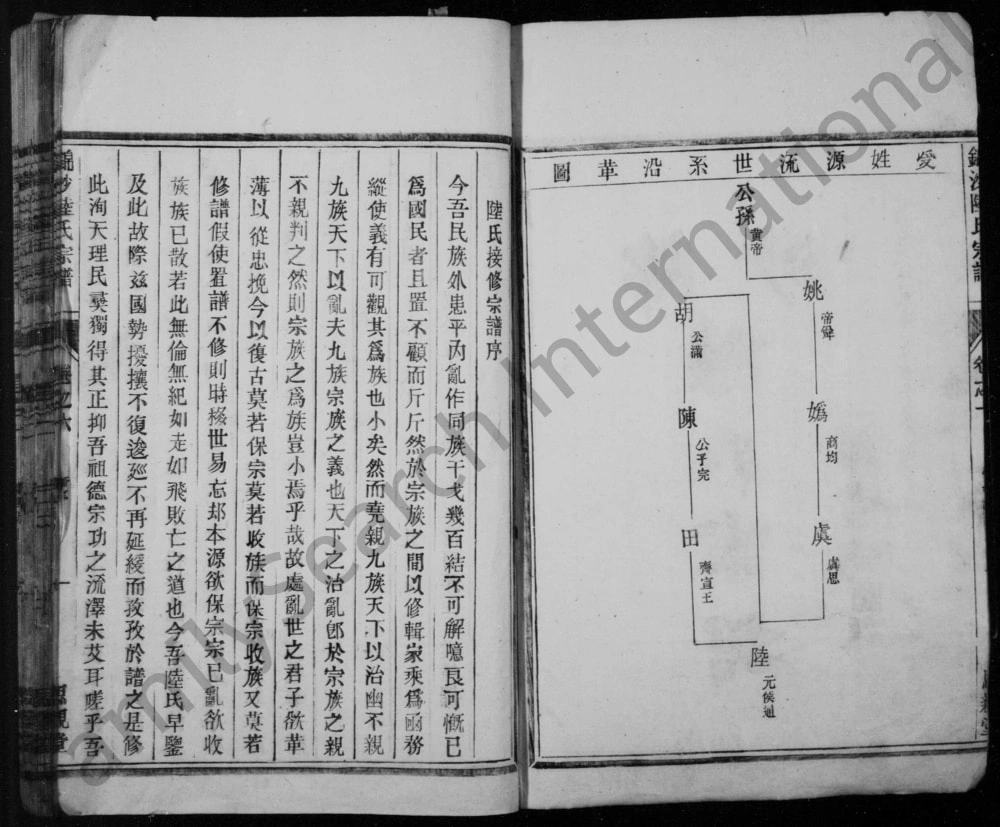 愛姓源流世系沿革圖
公孫
黃帝
姚
帝舜
媯
商均
虞
虞思
胡
公滿
陳
公子完
田
齊宣王
陸
元侯通
陸氏宗譜
陸氏接修宗譜序
今吾民族外患平內亂作同族干戈幾百結不可解噫良可慨已
爲國民者且置不顧而斤斤然於宗族之間以修輯家乘爲函務
縱使義有可觀其爲族也小矣然而堯親九族天下以治幽不親
九族天下以亂夫九族宗族之義也天下之治亂卽於宗族之親
不親判之然則宗族之爲族豈小焉乎哉故處亂世之君子欲革
薄以從忠挽今以復古莫若保宗莫若收族而保宗收族又莫若
修譜假使置譜不修則時移世易忘却本源欲保宗宗已亂欲收
族族已散若此無倫無紀如走如飛敗亡之道也今吾陸氏早鑒
及此故際玆國勢擾攘不復逡廵不再延緩而孜孜於譜之是修
此洵天理民彛獨得其正抑吾祖德宗功之流澤未艾耳嗟乎吾
陸氏宗譜
卷之六
一
FamilySearch International